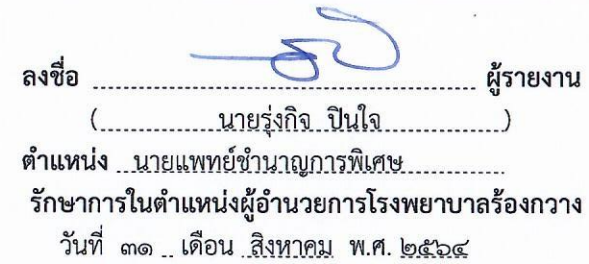 ลงชื่อ ........................................................ ผู้รายงาน
(..................นายรุ่งกิจ ปินใจ..................)
ตำแหน่ง ..นายแพทย์ชำนาญการพิเศษ................
รักษาการในตำแหน่งผู้อำนวยการโรงพยาบาลร้องกวาง
วันที่ ๓๑ .. เดือน .สิงหาคม พ.ศ. ๒๕๖๔